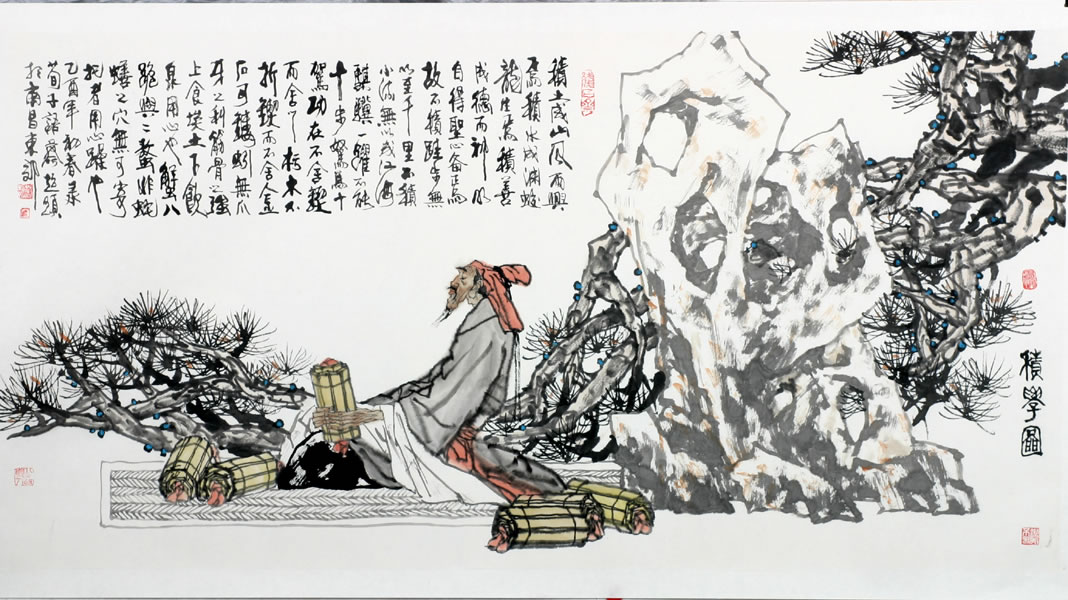 積學圖
積土成山風雨興
焉積水成淵蛟
龍生焉積善
成德而神明
自得聖心备焉
故不積跬步無
以至千里不積
小流無以成江海
騏驥一躍不能
十步駑馬十
駕功在不舍鍥
而舍之朽木不
折鍥而不舍金
石可鏤蚓無爪
牙之利筋骨之强
上食埃土下飲
泉用心也蟹八
跪與二螯非蛇
蟺之穴無可寄
托者用心躁也
乙酉年初春录
荀子
於南昌東郊